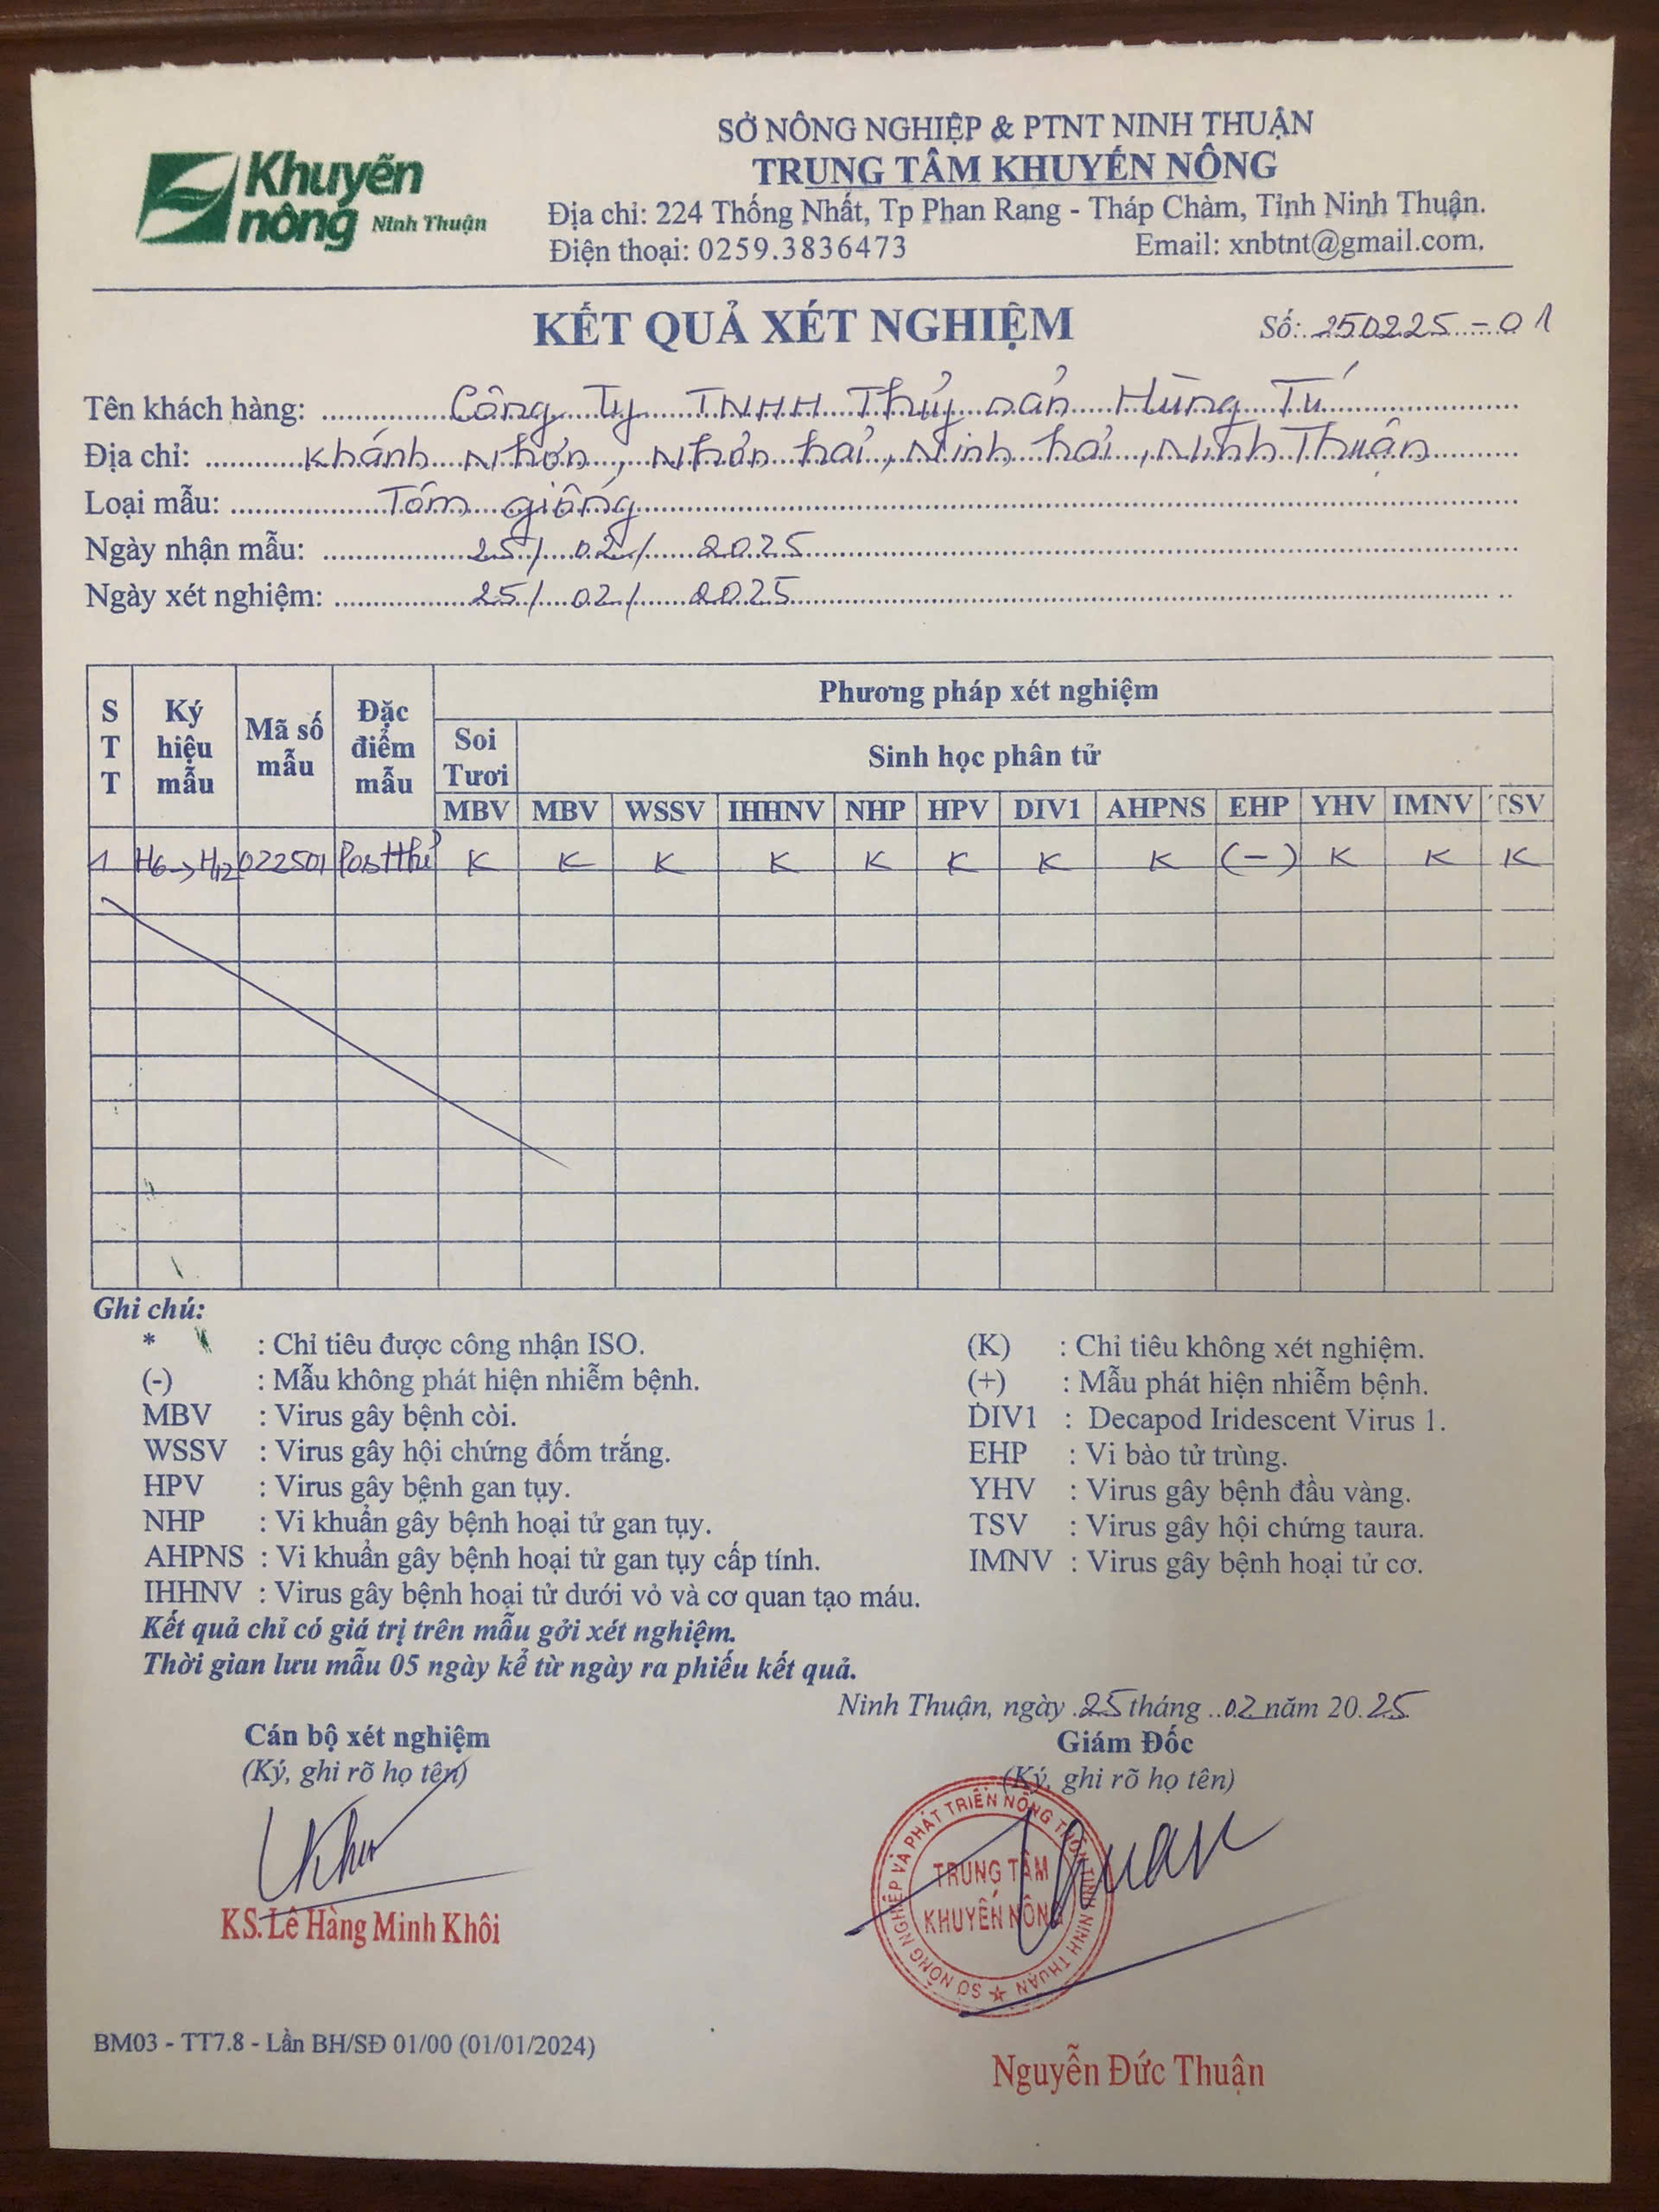 Khuyến
nông Ninh Thuận
SỞ NÔNG NGHIỆP & PTNT NINH THUẬN
TRUNG TÂM KHUYẾN NÔNG
Địa chỉ: 224 Thống Nhất, Tp Phan Rang - Tháp Chàm, Tỉnh Ninh Thuận.
Điện thoại: 0259.3836473 Email: xnbtnt@gmail.com.
KẾT QUẢ XÉT NGHIỆM Số: 250225-01
Tên khách hàng: Công Ty TNHH Thủy sản Hùng Tú
Địa chỉ: Khánh Nhơn, Nhơn hải, Ninh hải, Ninh Thuận
Loại mẫu: Tôm giống
Ngày nhận mẫu: 25/02/2025
Ngày xét nghiệm: 25/02/2025
STT Ký hiệu mẫu Mã số mẫu Đặc điểm mẫu Phương pháp xét nghiệm
Soi Tươi Sinh học phân tử
MBV MBV WSSV IHHNV NHP HPV DIV1 AHPNS EHP YHV IMNV TSV
1 H6→H12 022501 Postthẻ K K K K K K K K (-) K K K
Ghi chú:
* : Chỉ tiêu được công nhận ISO. (K) : Chỉ tiêu không xét nghiệm.
(-) : Mẫu không phát hiện nhiễm bệnh. (+) : Mẫu phát hiện nhiễm bệnh.
MBV : Virus gây bệnh còi. DIV1 : Decapod Iridescent Virus 1.
WSSV : Virus gây hội chứng đốm trắng. EHP : Vi bào tử trùng.
HPV : Virus gây bệnh gan tụy. YHV : Virus gây bệnh đầu vàng.
NHP : Vi khuẩn gây bệnh hoại tử gan tụy. TSV : Virus gây hội chứng taura.
AHPNS : Vi khuẩn gây bệnh hoại tử gan tụy cấp tính. IMNV : Virus gây bệnh hoại tử cơ.
IHHNV : Virus gây bệnh hoại tử dưới vỏ và cơ quan tạo máu.
Kết quả chỉ có giá trị trên mẫu gởi xét nghiệm.
Thời gian lưu mẫu 05 ngày kể từ ngày ra phiếu kết quả.
Ninh Thuận, ngày 25 tháng 02 năm 2025
Cán bộ xét nghiệm Giám Đốc
(Ký, ghi rõ họ tên) (Ký, ghi rõ họ tên)
SỞ NÔNG NGHIỆP VÀ PHÁT TRIỂN NÔNG THÔN TỈNH NINH THUẬN
TRUNG TÂM
KHUYẾN NÔNG
KS. Lê Hàng Minh Khôi
Nguyễn Đức Thuận
BM03 - TT7.8 - Lần BH/SĐ 01/00 (01/01/2024)